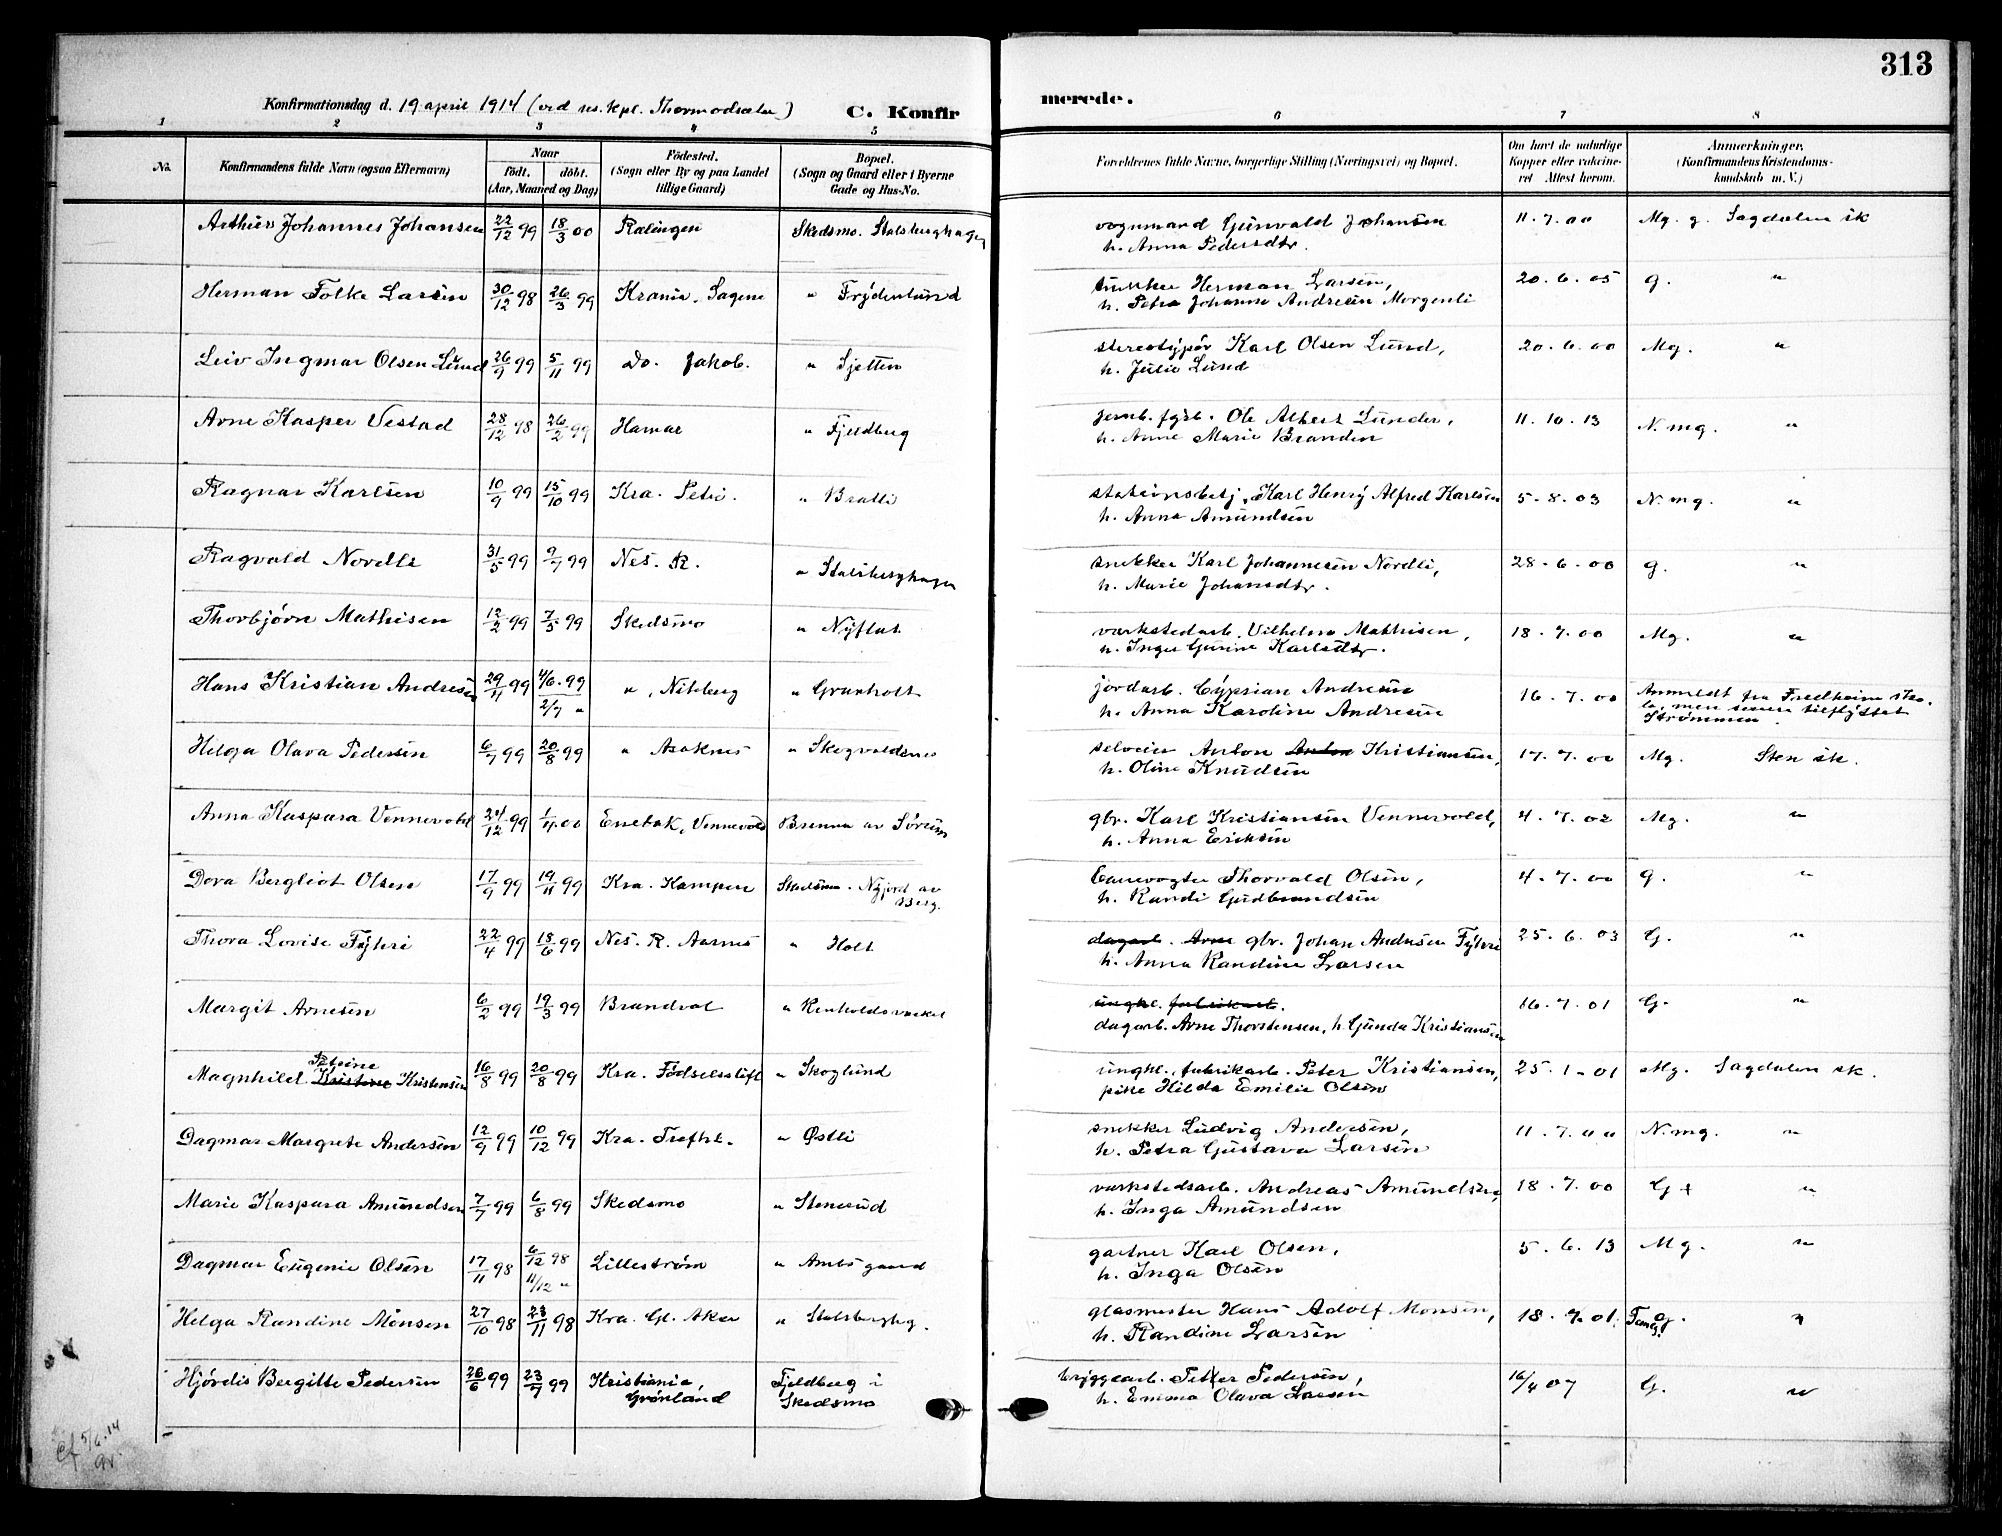 313
Konfirmationsdag d. 19 april 1914 (ved res. kpl. Thormodsæter)
C. Konfirmerede.
1 2 3 4 5 6 7 8
No. | Konfirmandens fulde Navn (ogsaa Efternavn) | Naar født. døbt. (Aar, Maaned og Dag) | Fødested. (Sogn eller By og paa Landet tillige Gaard) | Bopæl. (Sogn og Gaard eller i Byerne Gade og Hus-No. | Forældrenes fulde Navne, borgerlige Stilling (Næringsvei) og Bopæl. | Om havt de naturlige Kopper eller vakcineret Attest herom. | Anmærkninger. (Konfirmandens Kristendomskundskab m. V.)
Arthur Johannes Johansen 22/12 99 18/3 00 Rælingen Skedsmo. Stalsberghagen vognmand Gunvald Johansen 11.7.00 Mg. g. Sagdalen sk
h. Anna Pedersdtr.
Herman Folke Larsen 30/12 98 26/3 99 Krania. Sagene " Frydenlund snekker Herman Larsen, 20.6.05 g. "
h. Petra Johanne Andresen Morgenli
Leiv Ingmar Olsen Lund 26/9 99 5/11 99 Do. Jakob. " Sjetten stereotypør Karl Olsen Lund, 20.6.00 Mg. "
h. Julie Lund
Arne Kasper Vestad 28/12 98 26/2 99 Hamar " Fjeldberg jernb. fyrb. Ole Albert Lunder, 11.10.13 N. mg. "
h. Anne Marie Branden
Ragnar Karlsen 10/9 99 15/10 99 Kra. Petri. " Bratli stationsbetj. Karl Henry Alfred Karlsen 5.8.03 N. mg. "
h. Anna Amundsen
Ragvald Nordli 31/5 99 9/7 99 Nes. R. " Stalsberghagen snekker Karl Johannesen Nordli, 28.6.00 g. "
h. Marie Johansdtr.
Thorbjørn Mathisen 12/2 99 7/5 99 Skedsmo " Nyflot verkstedarb. Vilhelm Mathisen, 18.7.00 Mg. "
h. Inger Gurine Karlsdtr.
Hans Kristian Andresen 29/11 99 4/6.99 2/7 " ", Niteberg " Granholt jordarb. Cyprian Andresen 16.7.00 Anmeldt fra Fredheim sko-
h. Anna Karoline Andresen le, men senere tilflyttet
Strømmen.
Helga Olava Pedersen 6/7 99 20/8 99 " Asaknes " Skogvoldsnes selveier Anton Anton Kristiansen, 17.7.00 Mg. Sten sk.
h. Oline Knudsen
Anna Kaspara Vennevold 24/12 99 1/4.00 Enebak, Vennevold Brenna av Sørum gbr. Karl Kristiansen Vennevold, 4.7.02 Mg. "
h. Anna Eriksen
Dora Bergliot Olsen 17/9 99 19/11 99 Kra. Kampen Skedsmo. Nyjord av banevogter Thorvald Olsen, 4.7.00 g. "
Berg. h. Randi Gudbrandsen
Thora Lovise Fyhri 22/4 99 18/6 99 Nes. R. Aarnes " Holt dagarb. Arne gbr. Johan Andersen Fyhri 25.6.03 G. "
h. Anna Randine Larsen
Margit Arnesen 6/2 99 19/3 99 Brandval " Renholdsverket ungk. fabrikarb. 16.7.01 G. "
dagarb. Arne Thorstensen, h. Gunda Kristiansen
Petrine
Magnhild Kristine Kristensen 16/8 99 20/8 99 Kra. Fødselsstift " Skoglund ungk. fabrikarb. Peter Kristiansen, 25.1.01 Mg. Sagdalen sk.
pike Hilda Emilie Olsen
Dagmar Margrete Andersen 12/9 99 10/12 99 Kra. Trefht. " Østli snekker Ludvig Andersen, 11.7.00 N. mg. "
h. Petra Gustava Larsen
Marie Kaspara Amundsen 7/7 99 6/8 99 Skedsmo " Stenerud verkstedsarb. Andreas Amundsen, 18.7.00 G + "
h. Inga Amundsen
Dagmar Eugenie Olsen 17/11 98 6/12 98 11/12 " Lillestrøm " Amtsgaard gartner Karl Olsen, 5.6.13 Mg. "
h. Inga Olsen
Helga Randine Monsen 27/10 98 23/11 98 Kra. Gl. Aker " Stalsberghg. glasmester Hans Adolf Monsen, 18.7.01. Temg. "
h. Randine Larsen
Hjørdis Bergitte Pedersen 26/6 99 23/7 99 Kristiania, Fjeldberg i bryggearb. Petter Pedersen, 16/4 07 G. "
Grønland Skedsmo h. Emma Olava Larsen
5/6.14